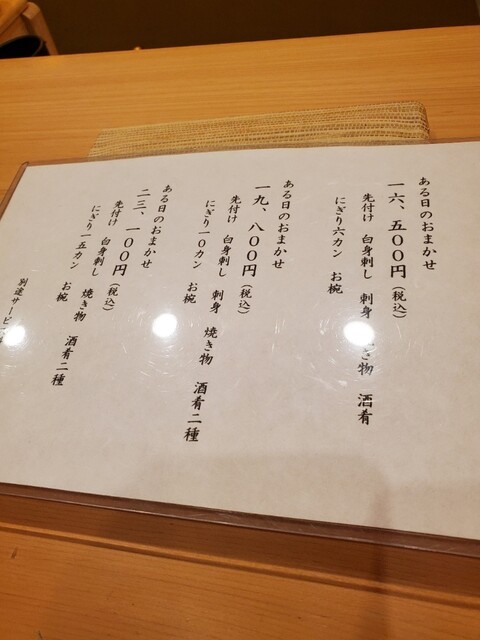 ある日のおまかせ
一六、五〇〇円（税込）
先付け 白身刺し 刺身 き物 酒肴
にぎり六カン お椀
ある日のおまかせ
一九、八〇〇円（税込）
先付け 白身刺し 刺身 焼き物 酒肴二種
にぎり一〇カン お椀
ある日のおまかせ
二三、一〇〇円（税込）
先付け 白身刺し 焼き物 酒肴二種
にぎり一五カン お椀
別途サービ